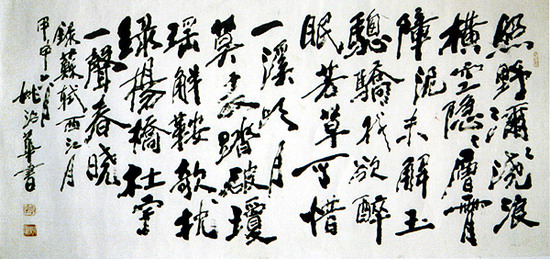 照野瀰瀰淺浪
橫空隱隱層霄
障泥未解玉
驄驕我欲醉
眠芳草可惜
一溪明月
莫教踏破瓊
瑤解鞍欹枕
綠楊橋杜宇
一聲春曉
錄蘇軾西江月
甲申月
姚治華書